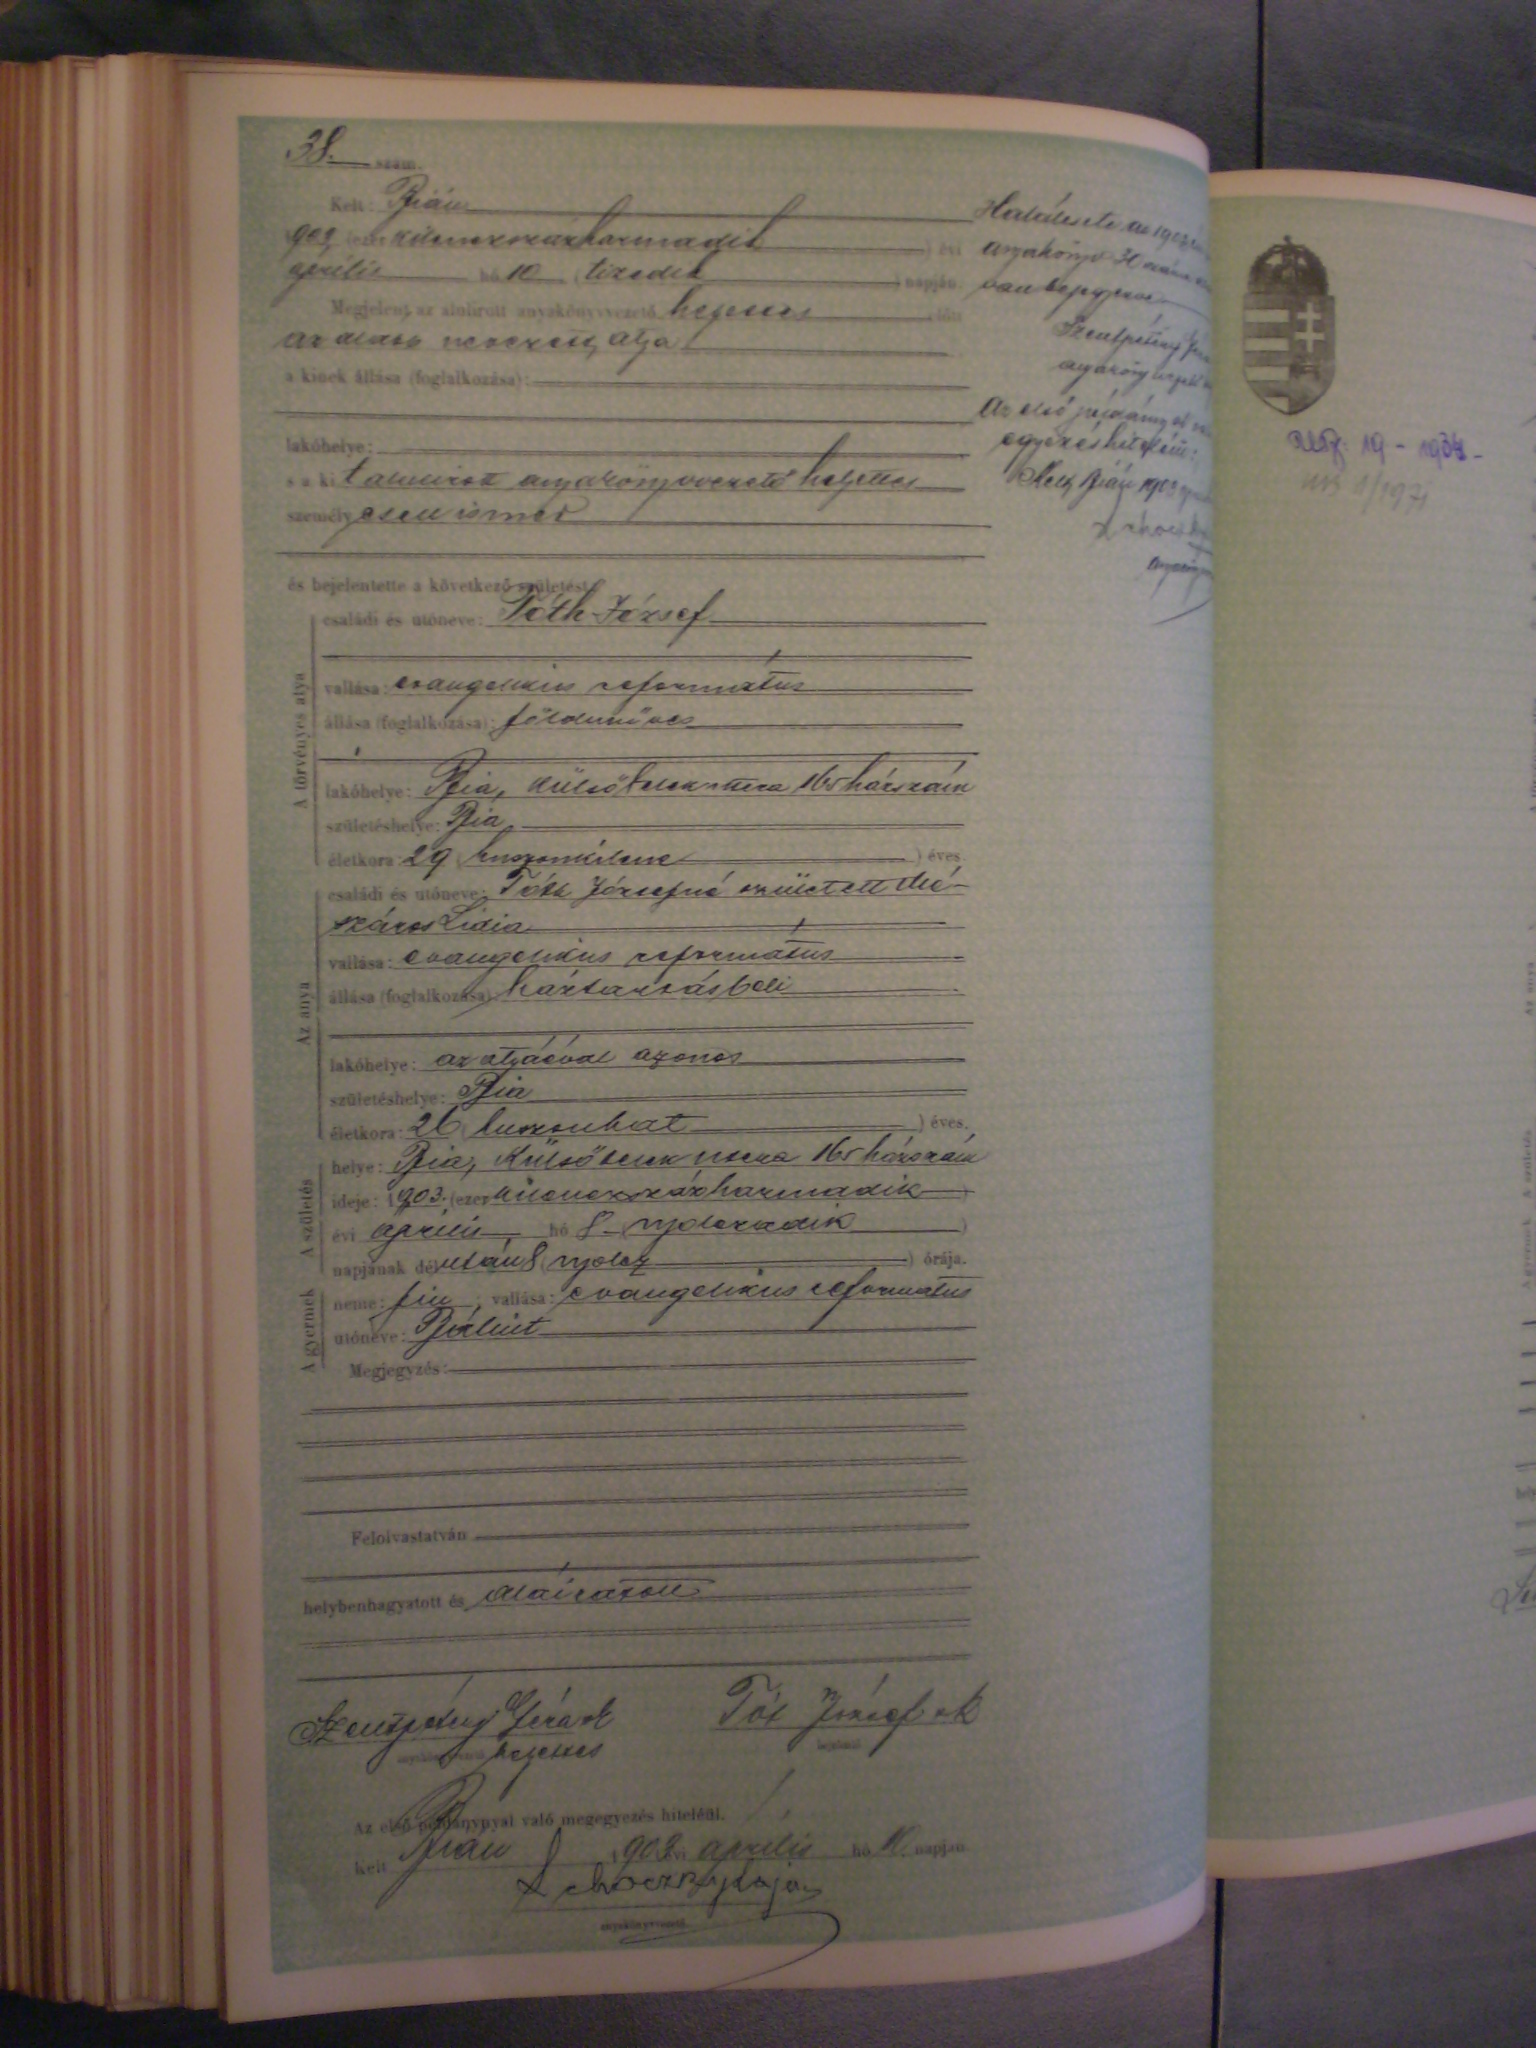 38. szám.
Kelt: Bián
1903 (ezer kilenczszázharmadik) évi
április hó 10 (tizedik) napján.
Megjelent az alulirott anyakönyvvezető helyettes előtt
az alább nevezett atya
a kinek állása (foglalkozása):
lakóhelye:
s a kit alulirott anyakönyvvezető helyettes
személyesen ismer
és bejelentette a következő születést:
A törvényes atya
családi és utóneve: Tóth József
vallása: evangelikus református
állása (foglalkozása): földmőves
lakóhelye: Bia, Külsőtelek utcza 165 házszám
születéshelye: Bia
életkora: 29 (huszonkilenc) éves.
Az anya
családi és utóneve: Tóth Józsefné született Mé-
száros Lidia
vallása: evangelikus református
állása (foglalkozása): háztartásbeli
lakóhelye: az atyáéval azonos
születéshelye: Bia
életkora: 26 (huszonhat) éves.
A születés
helye: Bia, Külsőtelek utcza 165 házszám
ideje: 1903. (ezer kilenczszázharmadik)
évi április hó 8 (nyolczadik)
napjának délután 8 (nyolcz) órája.
A gyermek
neme: fiu; vallása: evangelikus református
utóneve: Bálint
Megjegyzés:
Felolvastatván
helybenhagyatott és aláiratott
Szentpétery Gérárd
helyettes
Tót József
Az első példánynyal való megegyezés hiteléül.
Kelt Bián 1903 évi április hó 10. napján
anyakönyvvezető
Halálesete az 1903
anyakönyv 30 szám
van bejegyezve
Szentpétery
Az első példánynyal
egyezés hiteléül:
Kelt Bián 1903
19 - 1954 -
1/1971